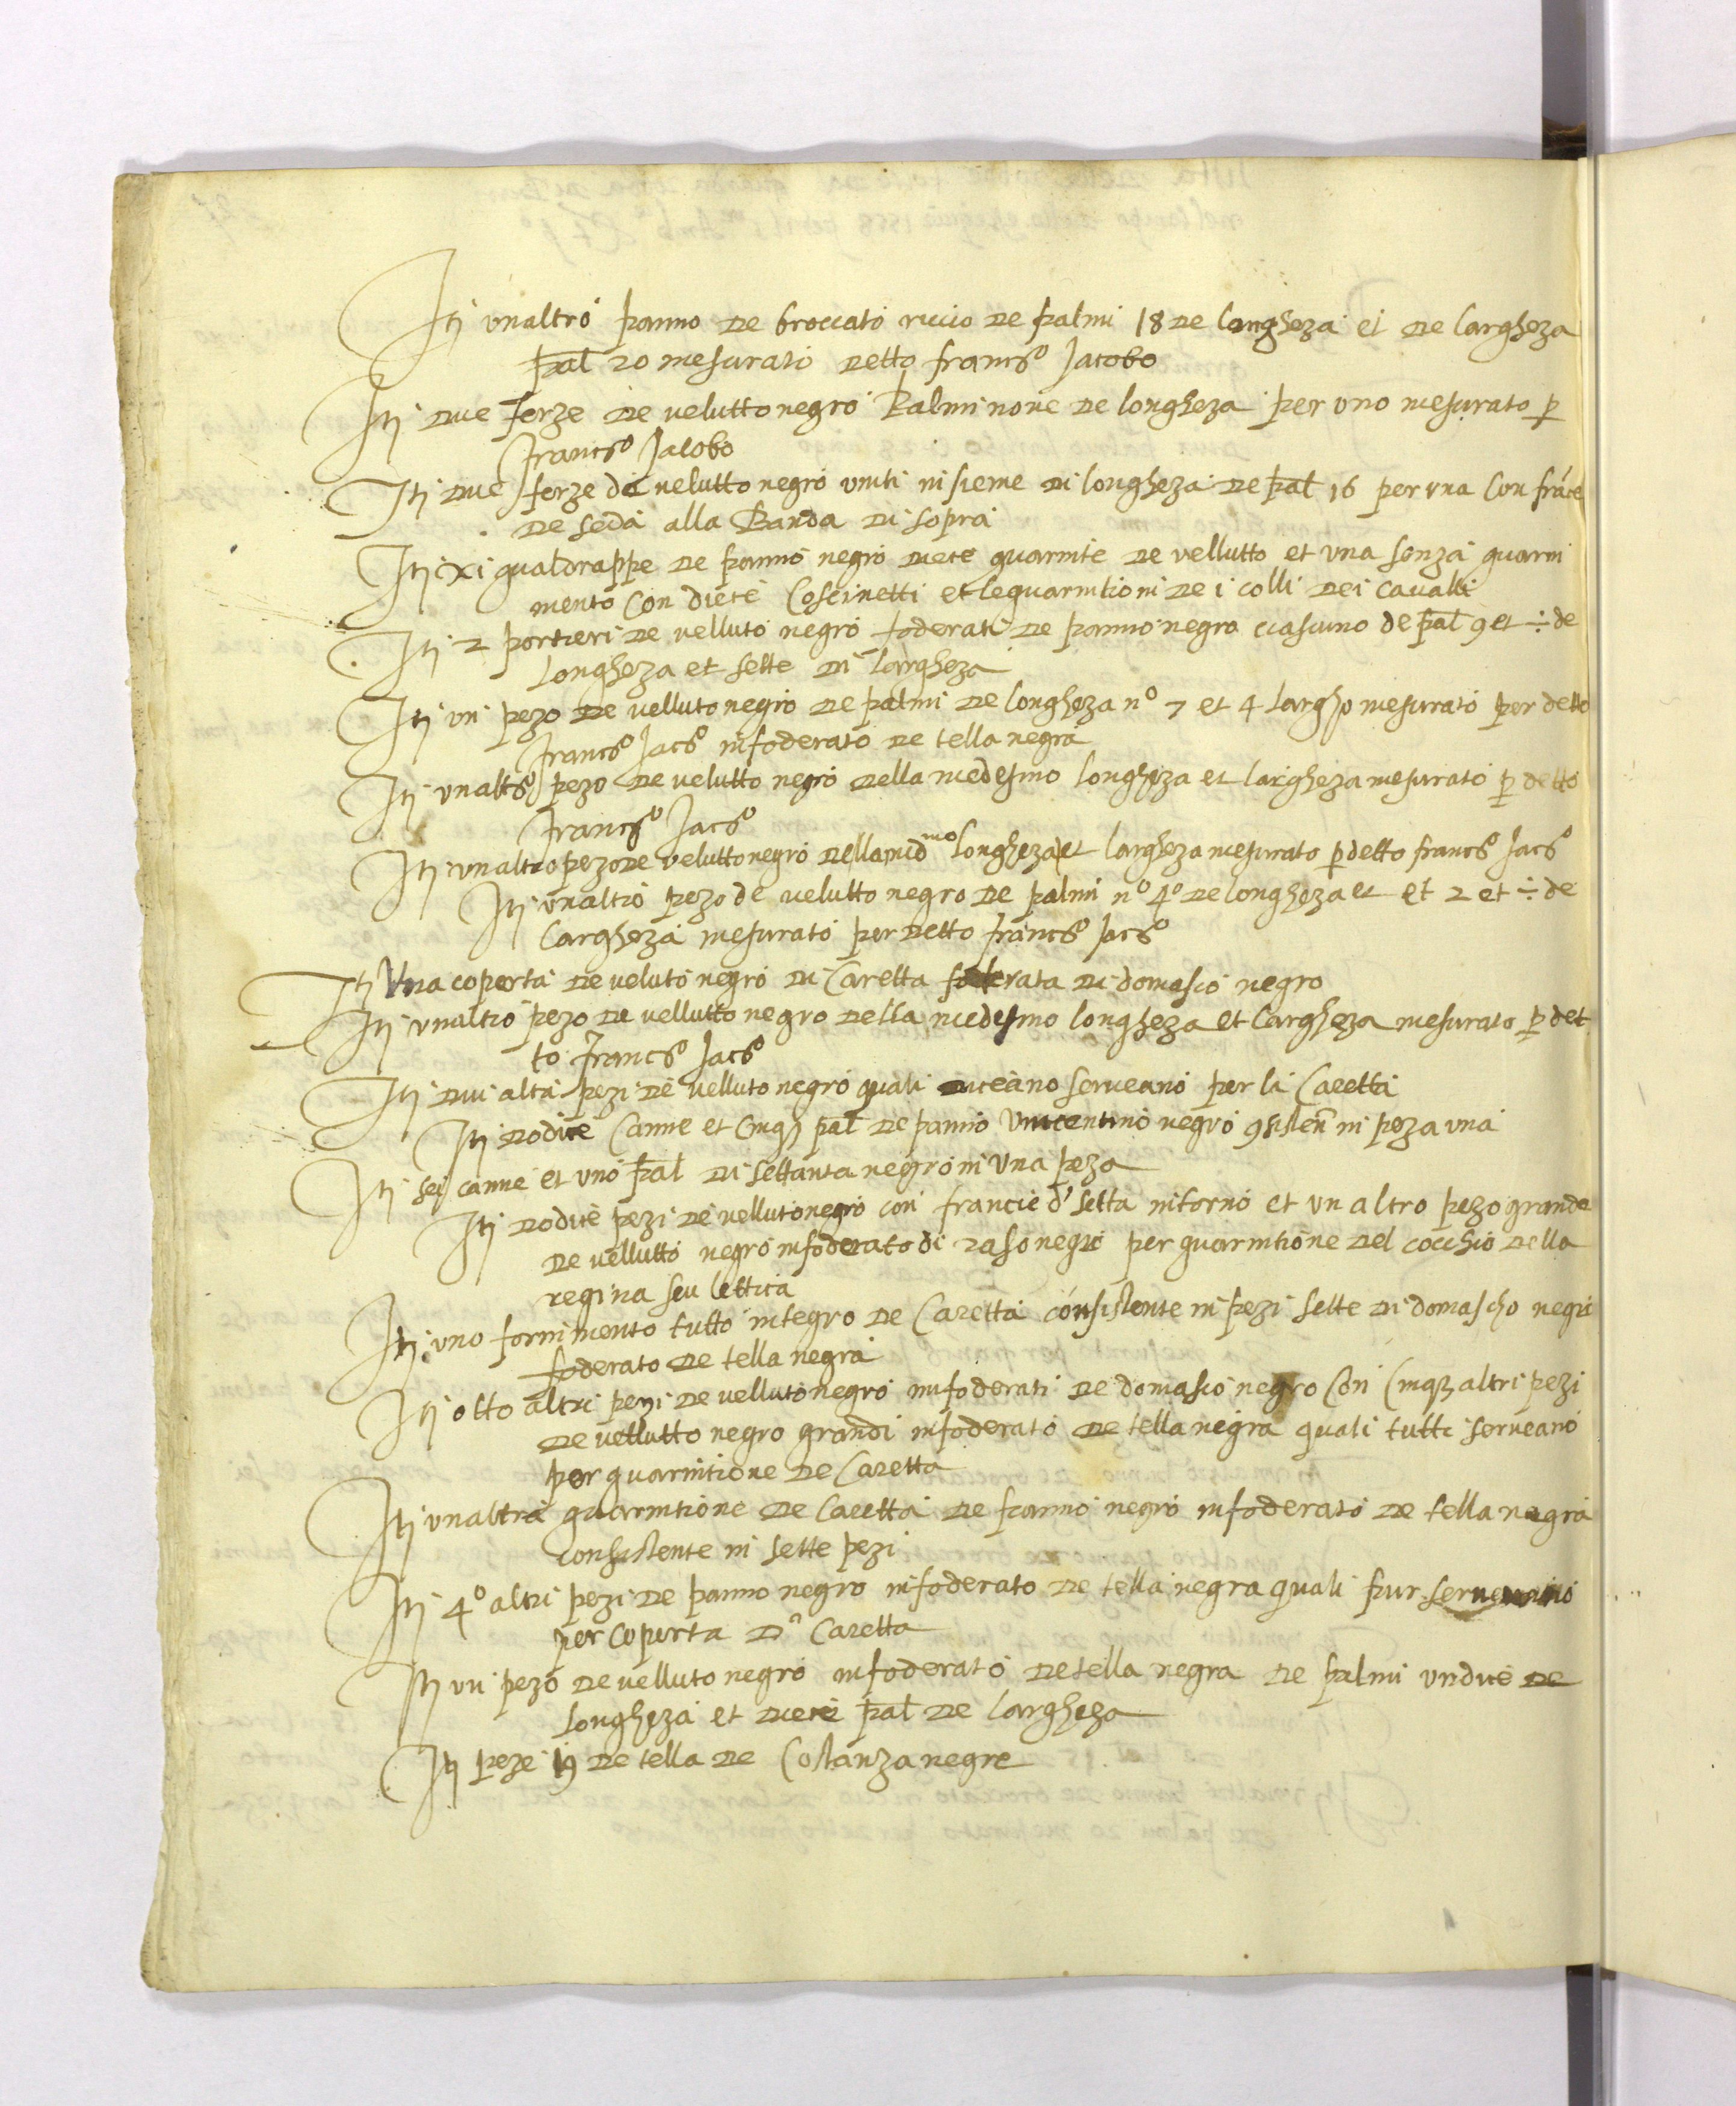 Itj unaltro panno de broccato riccio de palmi 18 de longheza et de largheza
pal 20 mesurato detto francso Jacobo
Itj due ferze de velutto negro Palmi nove de longheza per uno mesurato p
francso Jacobo
Itj due ferze de velutto negro uniti insieme di longheza de pal 16 per una con france
de seda alla Banda di sopra
Itj xi gualdrappe de panno negro diece guarnite de vellutto et una senza guarni
mento con diece Coscinetti et le guarnitioni de i colli dei cavalli
Itj 2 portieri de velluto negro foderati de panno negro ciascuno de pal 9 et ÷ de
longheza et sette di largheza
Itj un pezo de velluto negro de palmi de longheza no 7 et 4 largho mesurato per detto
francso Jacso infoderato de tella negra
Itj unaltso pezo de velutto negro della medesmo longheza et largheza mesurato p detto
francso Jacso
Itj unaltro pezo de velutto negro della midmo longheza et largheza mesurato p detto francso Jacso
Itj unaltro pezo de velutto negro de palmi no 4o de longheza et et 2 et ÷ de
largheza mesurato per detto francso Jacso
Itj Una coperta de veluto negro di Caretta foderata di domasco negro
Itj unaltro pezo de vellutto negro della medesmo longheza et largheza mesurato p det
to francso Jacso
Itj dui altri pezi de velluto negro quali diceano serveano per li Caretti
Itj dodice Canne et cinqz pal de panno Vincentino negro 9sisten in peza una
Itj sei canne et uno pal di settanta negro in Una peza
Itj dodice pezi de velluto negro con francie d' setta intorno et un altro pezo grande
de vellutto negro infoderato di raso negro per guarnitione del cocchio della
regina seu lettica
Itj uno fornimento tutto integro de Caretta consistente in pezi sette di domascho negro
foderato de tella negra
Itj otto altri pezi de velluto negro infoderati de domasco negro con cinqz altri pezi
de vellutto negro grandi infoderato de tella negra quali tutti serveano
per guarnitione de Caretta
Itj unaltra guarnitione de caretta de panno negro infoderato de tella negra
consistente in sette pezi
Itj 4o altri pezi de panno negro infoderato de tella negra quali pur
per coperta da Caretta
Itj un pezo de velluto negro infoderato de tella negra de palmi undice de
longheza et diece pal de largheza
Itj peze 19 de tella de Costanza negre